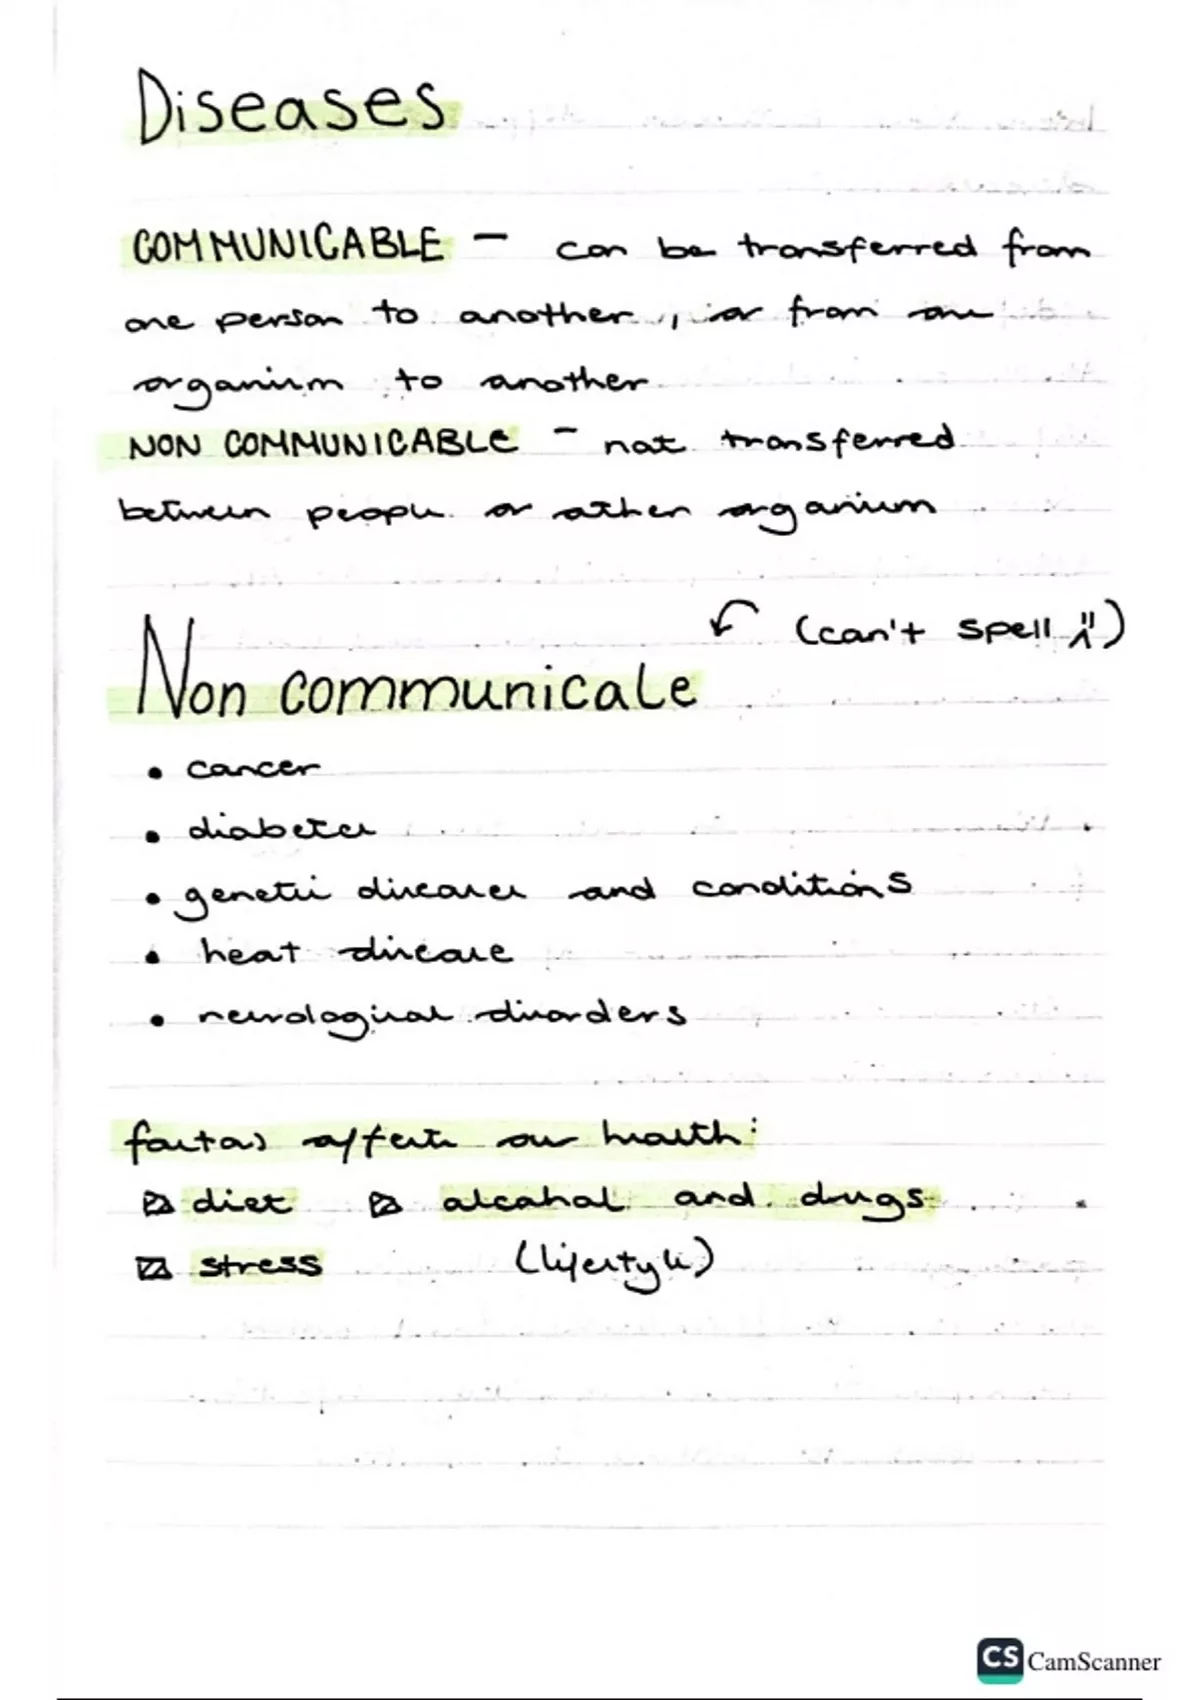 Diseases
COMMUNICABLE - can be transferred from
one person to another, or from an
organism to another
NON COMMUNICABLE - not transferred
between people or other organism
(can't spell )
Non communicale
• cancer
• diabetes
• genetic diseases and conditions
• heat disease
• neurological disorders
factors affects our health:
diet alcohol and drugs
stress (lifestyle)
CS CamScanner